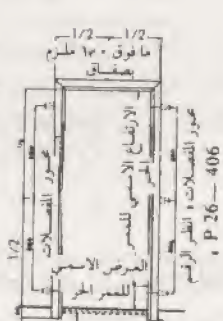 1/2 1/2
ما فوق ١٥٠ ملزم
بصفاق
محور المفصلات
1/2
الارتفاع الاسمي للممر
الحر
محور المفصلات ، انظر الرقم
P 26 – 406 ،
العرض الاسمي
للممر الحر